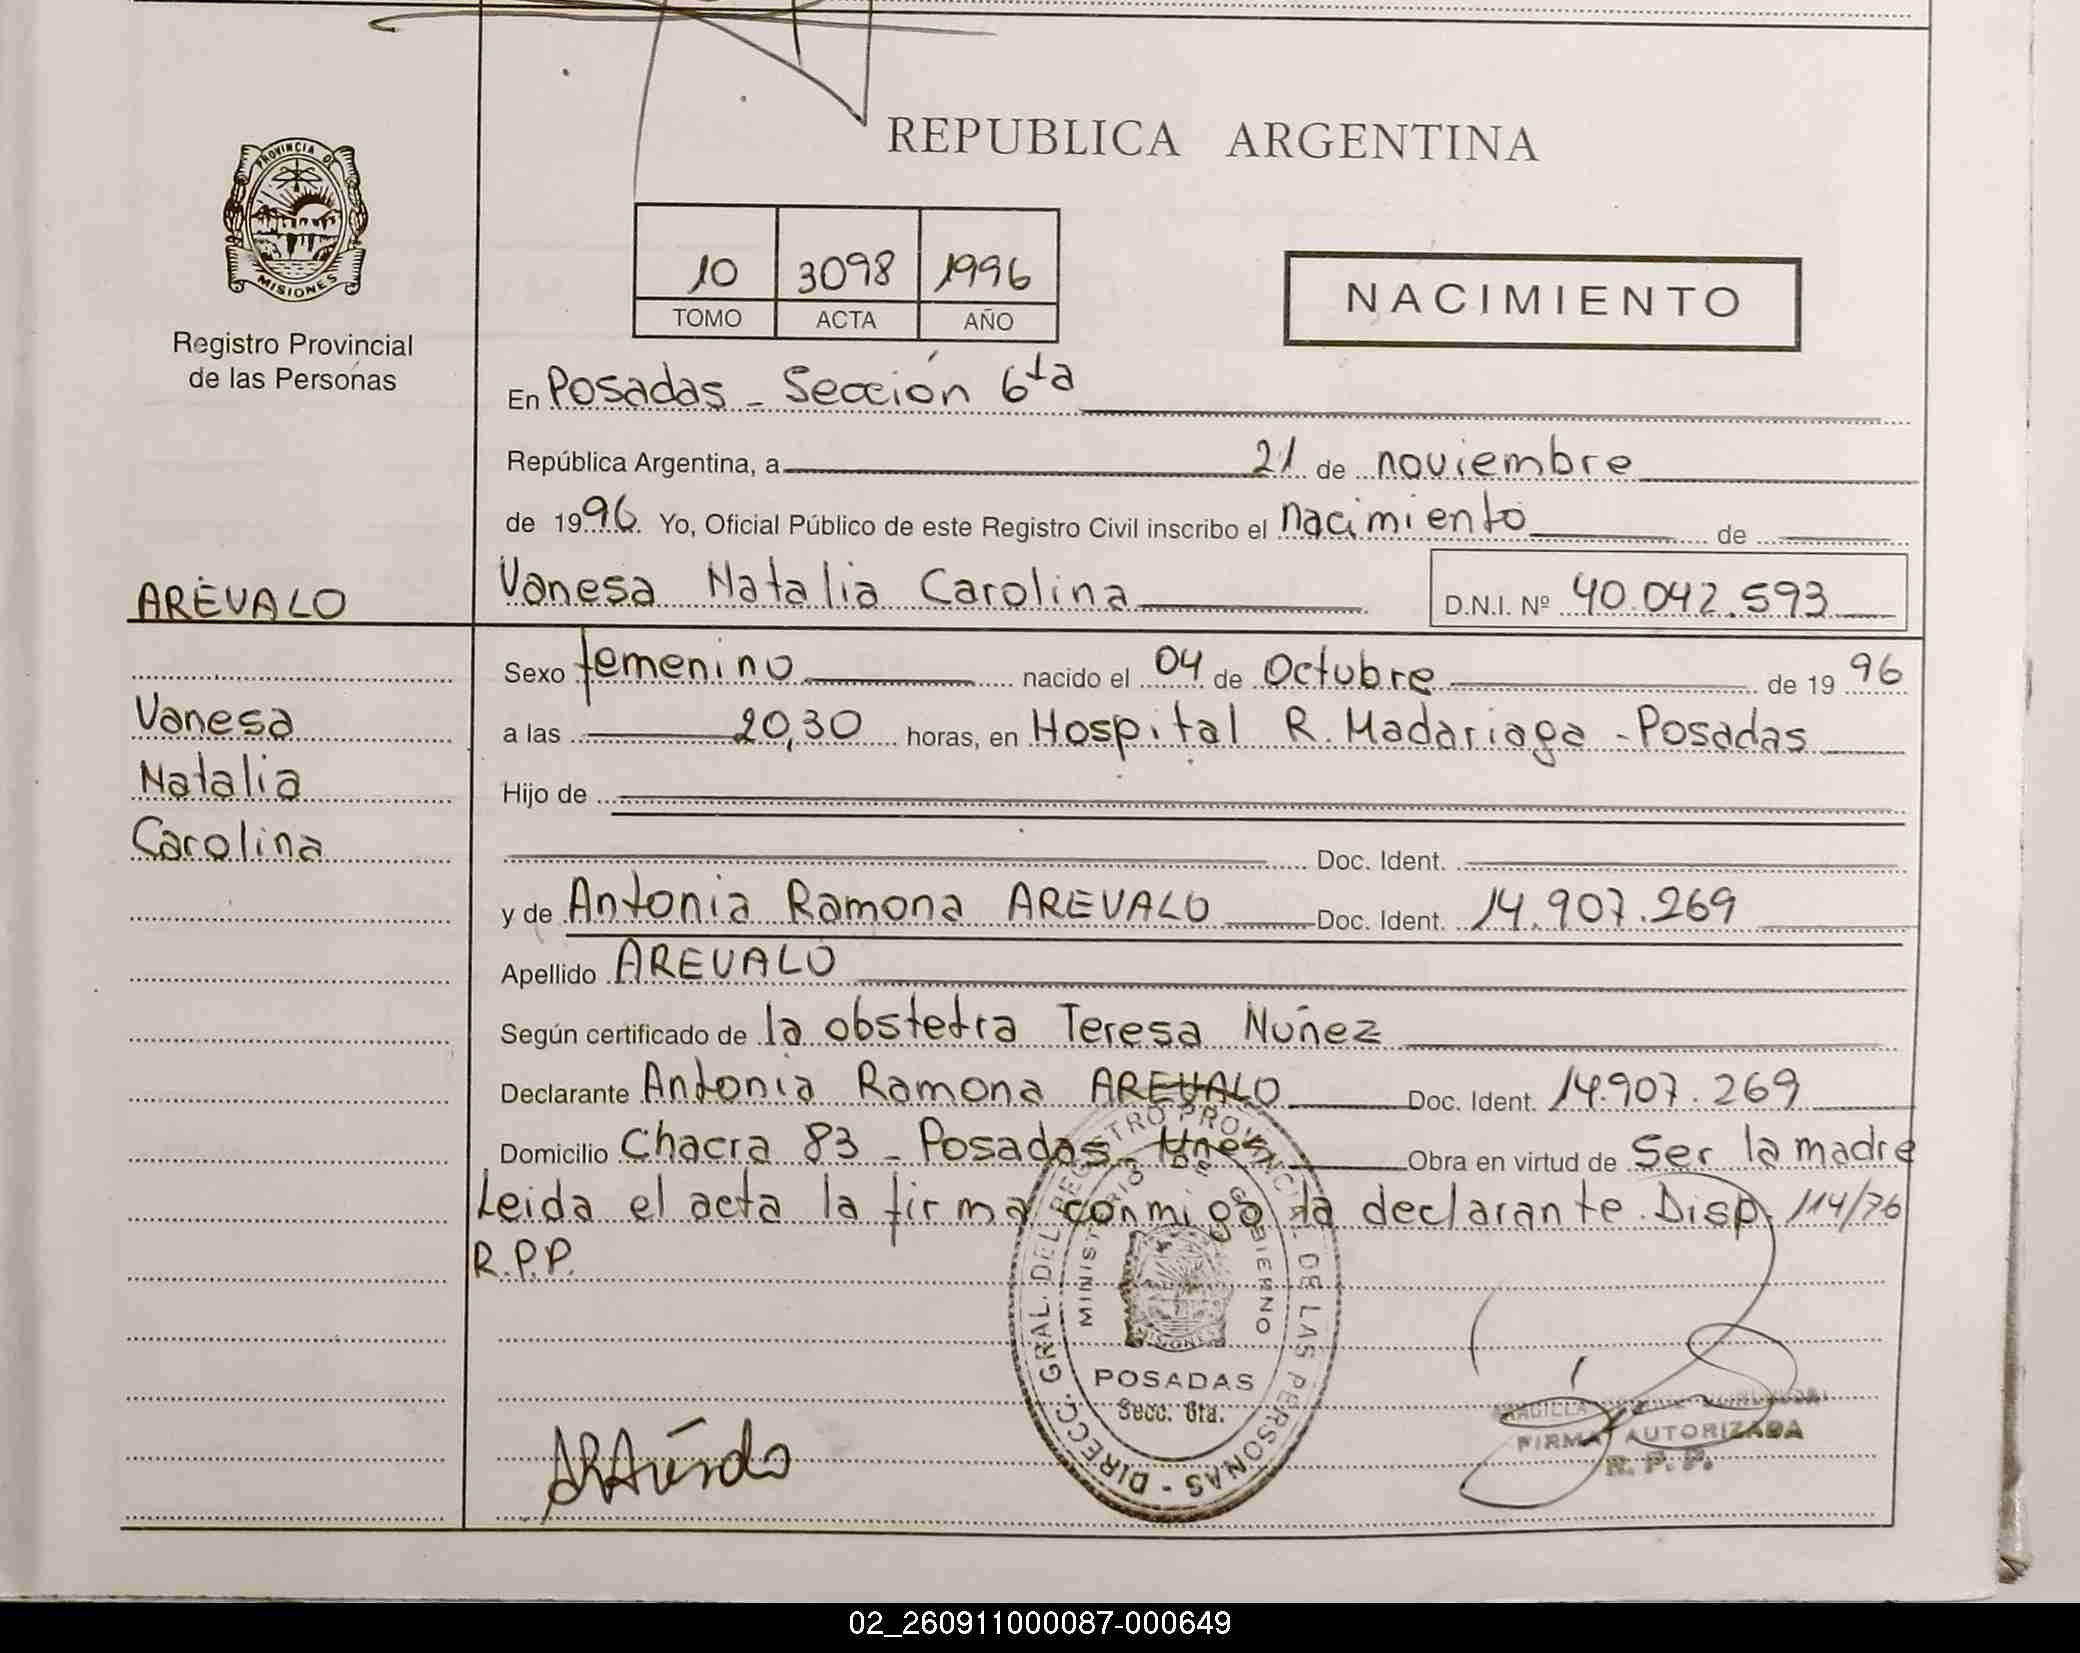 REPUBLICA ARGENTINA
PROVINCIA DE
MISIONES
Registro Provincial
de las Personas
10 3098 1996
TOMO ACTA AÑO
NACIMIENTO
En Posadas - Sección 6ta
República Argentina, a 21 de noviembre
de 1996 Yo, Oficial Público de este Registro Civil inscribo el nacimiento de
ARÉVALO Vanesa Natalia Carolina D.N.I. Nº 40.042.593
Sexo femenino nacido el 04 de Octubre de 1996
Vanesa
a las 20,30 horas, en Hospital R. Madariaga - Posadas
Natalia
Hijo de
Carolina
Doc. Ident.
y de Antonia Ramona AREVALO Doc. Ident. 14.907.269
Apellido AREVALO
Según certificado de la obstetra Teresa Nuñez
Declarante Antonia Ramona AREVALO Doc. Ident. 14.907.269
Domicilio Chacra 83 - Posadas - Mnes Obra en virtud de Ser la madre
Leida el acta la firma conmigo la declarante. Disp. 114/76
R.P.P.
DIRECC. GRAL. DEL REGISTRO PROVINCIAL DE LAS PERSONAS -
MINISTERIO DE GOBIERNO
MISIONES
POSADAS
Secc. 6ta.
FIRMA AUTORIZADA
R. P. P.
02_260911000087-000649